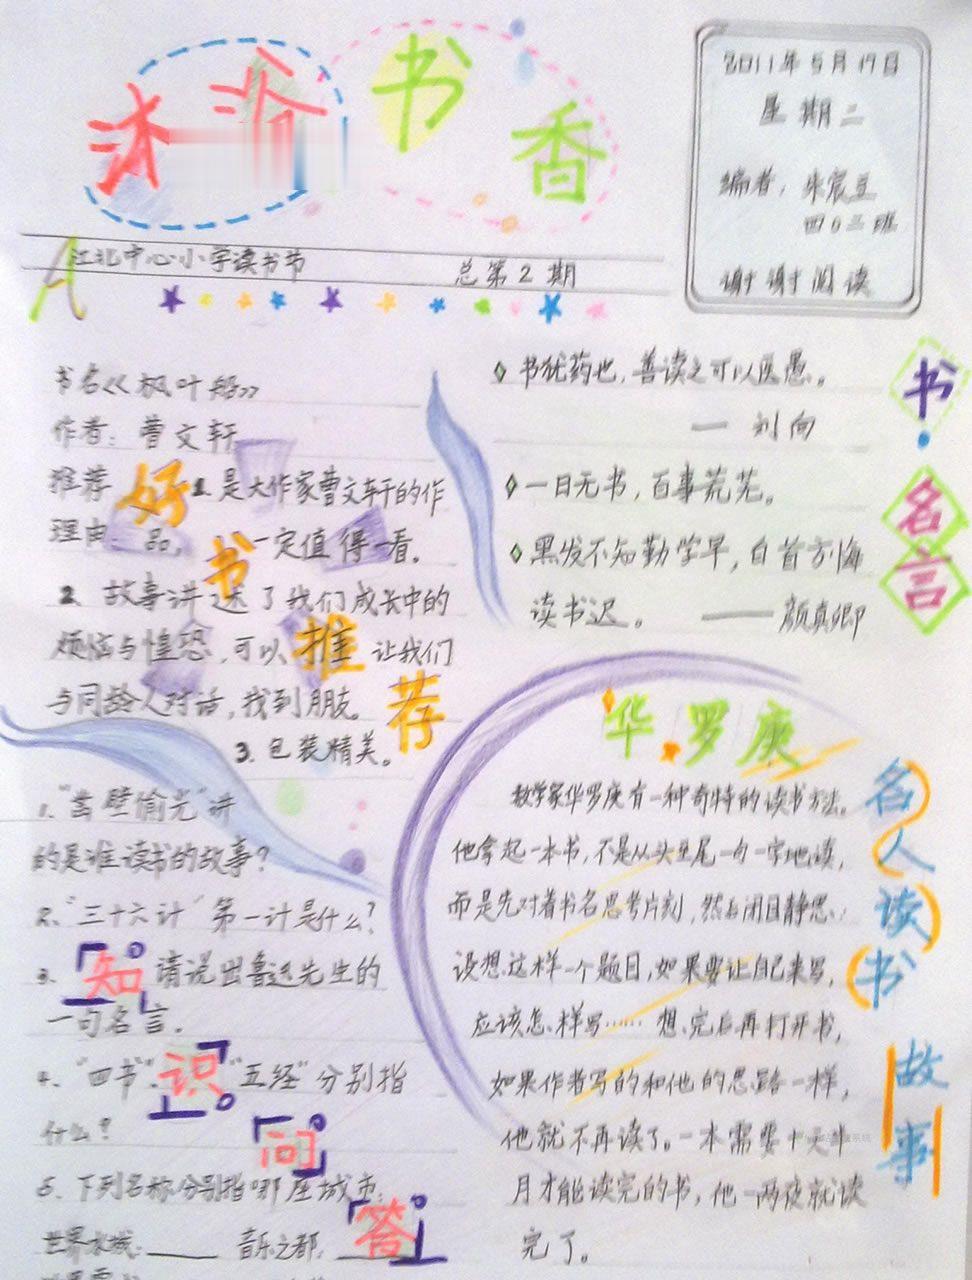 沐浴书香
2011年5月17日
星期二
编者：朱宸立
四0二班
谢谢阅读
江北中心小学读书节
总第2期
书名《枫叶船》
作者：曹文轩
推荐
理由：
1.是大作家曹文轩的作
品，一定值得一看。
2、故事讲述了我们成长中的
烦恼与惶恐，可以让我们
与同龄人对话，找到朋友。
3.包装精美。
好书推荐
书犹药也，善读之可以医愚。
— 刘向
一日无书，百事荒芜。
黑发不知勤学早，白首方悔
读书迟。 ——颜真卿
书名言
1、“凿壁偷光”讲
的是谁读书的故事？
2、“三十六计”第一计是什么？
3、请说出鲁迅先生的
一句名言．
4、“四书”、“五经”分别指
什么？
5、下列名称分别指哪座城市：
世界水城：____ 音乐之都：____
知识问答
华罗庚
数学家华罗庚有一种奇特的读书方法。
他拿起一本书，不是从头至尾一句一字地读，
而是先对着书名思考片刻，然后闭目静思：
设想这样一个题目，如果要让自己来写，
应该怎样写……想完后再打开书，
如果作者写的和他的思路一样，
他就不再读了。一本需要十天半
月才能读完的书，他一两夜就读
完了。
名人读书故事